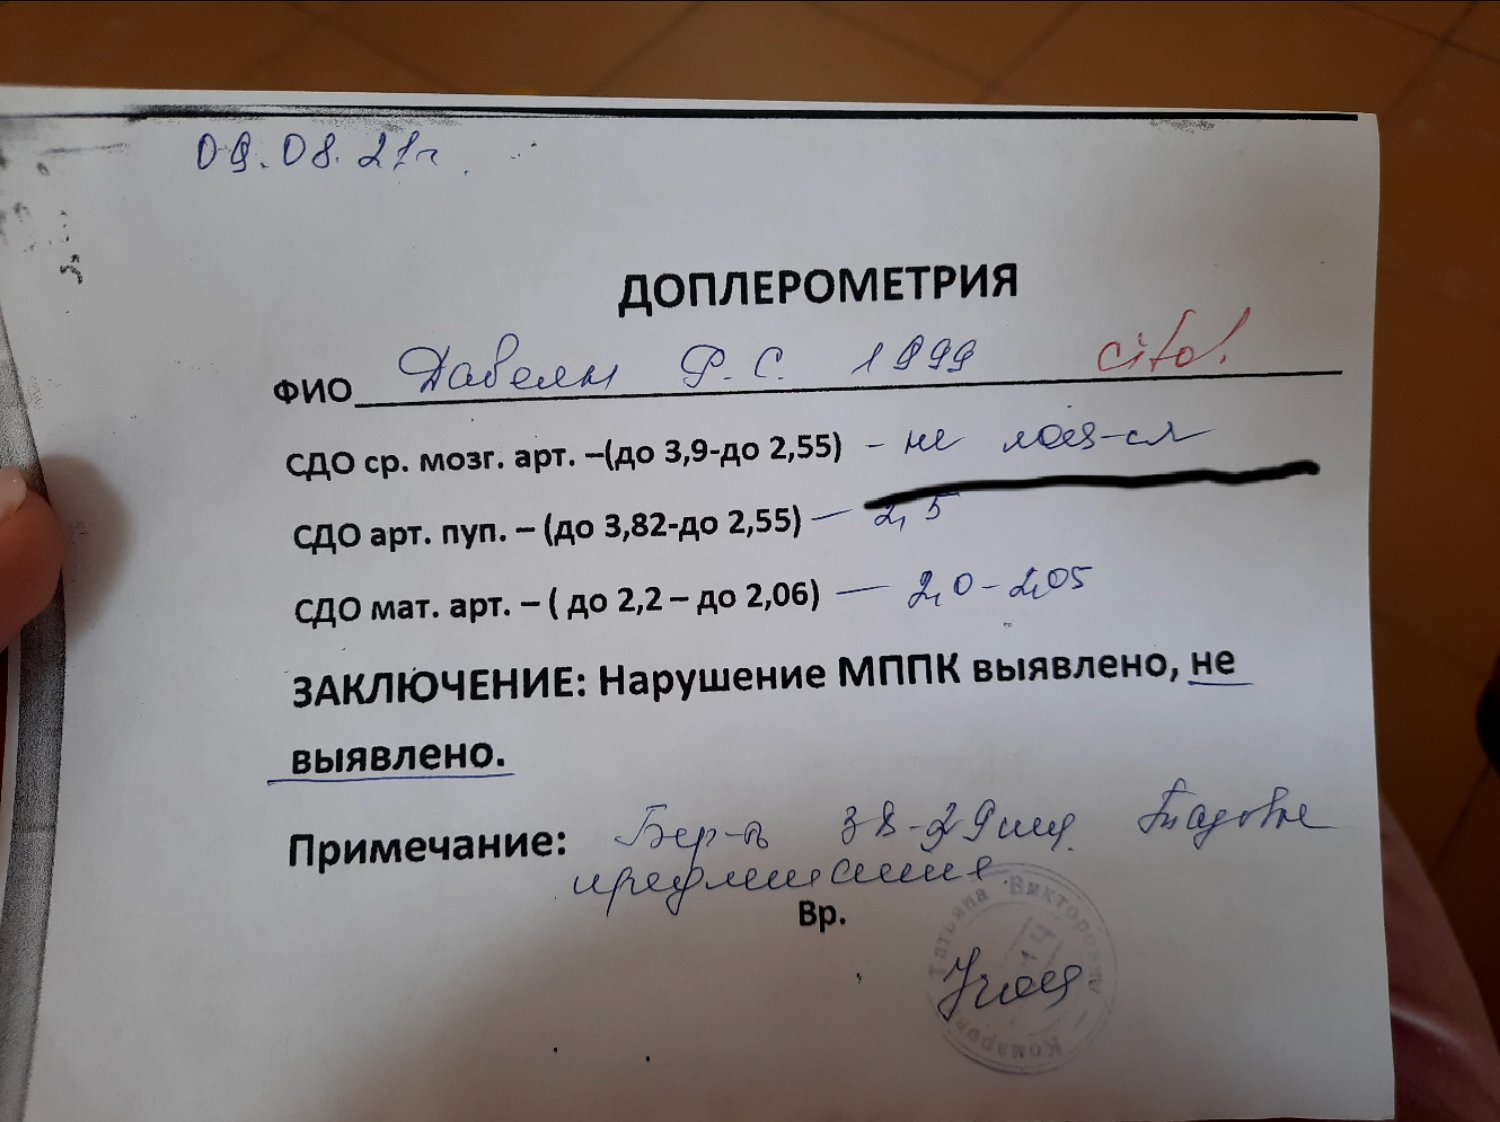 09.08.21г.
ДОПЛЕРОМЕТРИЯ
ФИО Р.С. 1999 cito!
СДО ср. мозг. арт. –(до 3,9-до 2,55) - не
СДО арт. пуп. – (до 3,82-до 2,55) — 2,5
СДО мат. арт. – ( до 2,2 – до 2,06) — 2,0-2,05
ЗАКЛЮЧЕНИЕ: Нарушение МППК выявлено, не
выявлено.
Примечание: Бер-ть 38-39 нед.
Вр.
Татьяна Викторовна